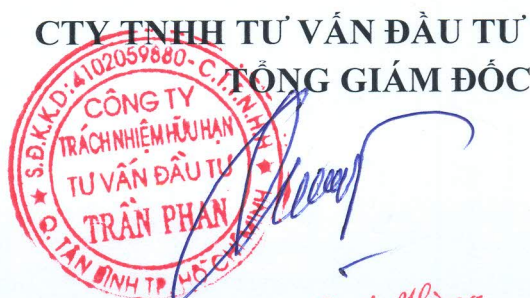 CTY TNHH TƯ VẤN ĐẦU TƯ
TỔNG GIÁM ĐỐC
S.Đ.K.K.D:4102059880-C.T.T.N.H.H
CÔNG TY
TRÁCH NHIỆM HỮU HẠN
TƯ VẤN ĐẦU TƯ
TRẦN PHAN
Q. TÂN BÌNH TP HỒ CHÍ MINH